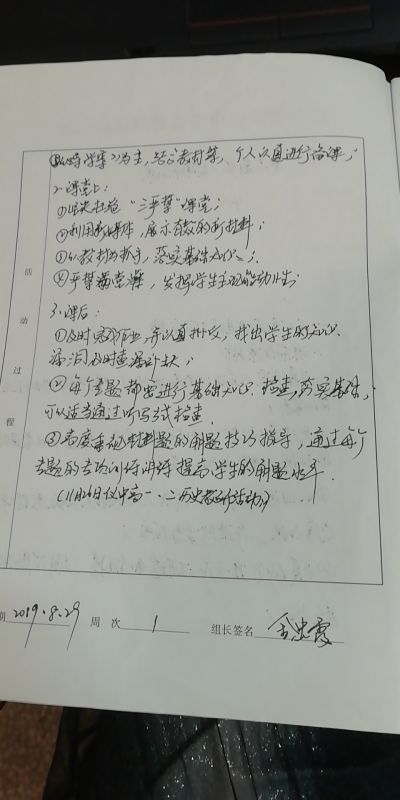 以导学案为主,结合教材等,个人认真进行备课;
2.课堂上:
①坚决杜绝“三严禁”课堂;
②利用新媒体,展示有效的新材料;
③以教材为抓手,落实基础知识;
④严禁满堂灌,发挥学生主观能动性;
3.课后:
①及时完成作业并认真批改,找出学生的知识
漏洞及时查漏补缺;
②每个专题都要进行基础知识检查,落实基础,
可以适当通过听写式检查.
③高度重视材料题的解题技巧指导,通过每个
专题的专项训练讲评提高学生的解题水平.
(11月26日 高一、二历史教研活动)
活动过程
期 2019.8.29 周次 1 组长签名